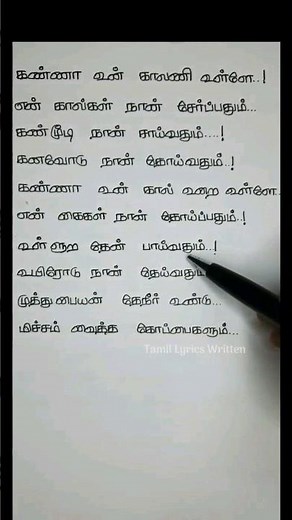 கண்ணா உன் காலணி உள்ளே..!
என் கால்கள் நான் சேர்ப்பதும்...
கண்மூடி நான் சாய்வதும்....!
கனவோடு நான் தோய்வதும்..!
கண்ணா உன் கால் உறை உள்ளே..
என் கைகள் நான் தோய்ப்பதும்..!
உள்ளூற தேன் பாய்வதும்..!
உயிரோடு நான் தேய்வதும்
முத்து பையன் தேநீர் உண்டு...
மிச்சம் வைத்த கோப்பைகளும்...
Tamil Lyrics Written